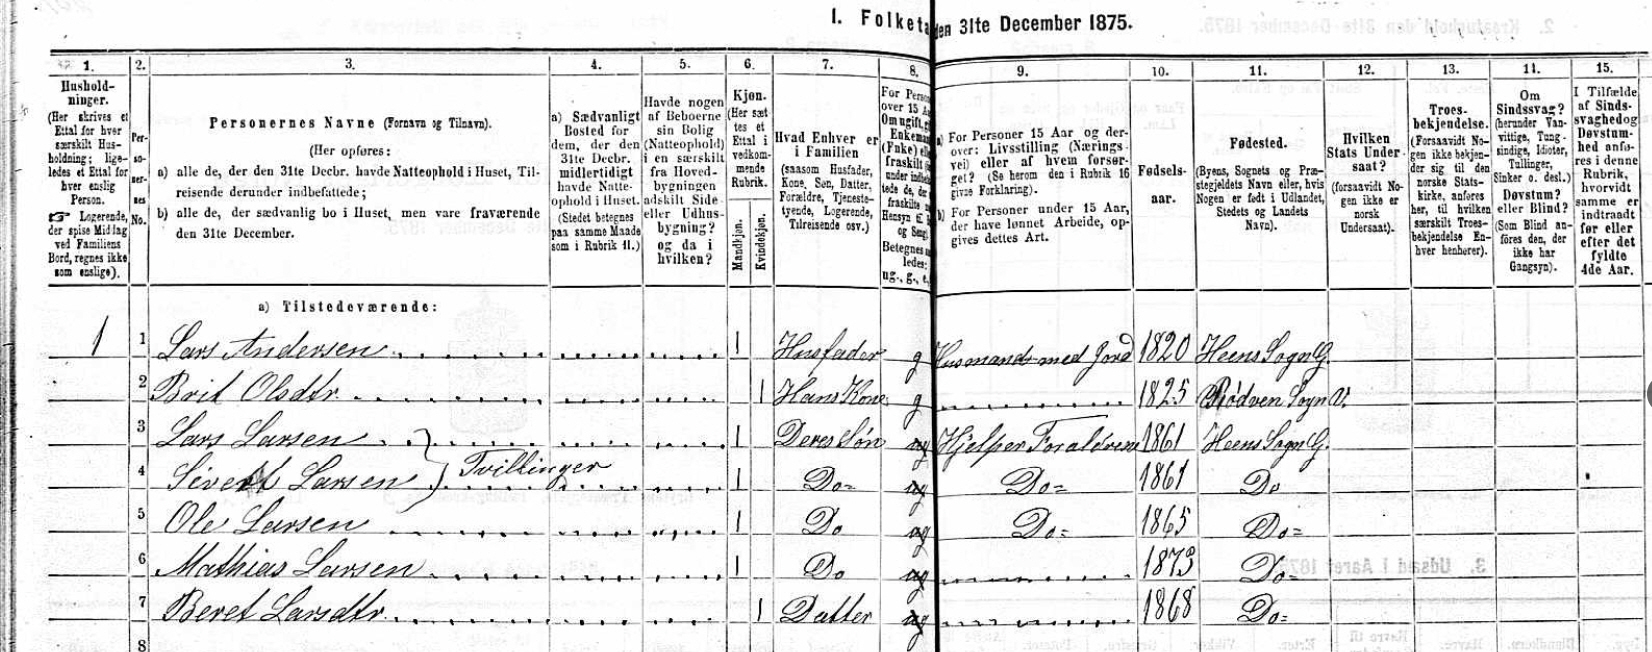 I. Folketa
den 31te December 1875.
1.
2.
3.
4.
5.
6.
7.
8.
9.
10.
11.
12.
13.
14.
15.
Hushold-
ninger.
(Her skrives et
Ettal for hver
særskilt Hus-
holdning; lige-
ledes et Ettal for
hver enslig
Person.
☞ Logerende,
der spise Middag
ved Familiens
Bord, regnes ikke
som enslige).
Per-
so-
ner-
nes
No.
Personernes Navne (Fornavn og Tilnavn).
(Her opføres:
a) alle de, der den 31te Decbr. havde Natteophold i Huset, Til-
reisende derunder indbefattede;
b) alle de, der sædvanlig bo i Huset, men vare fraværende
den 31te December.
a) Sædvanligt
Bosted for
dem, der den
31te Decbr.
midlertidigt
havde Natte-
ophold i Huset.
(Stedet betegnes
paa samme Maade
som i Rubrik 11.)
Havde nogen
af Beboerne
sin Bolig
(Natteophold)
i en særskilt
fra Hoved-
bygningen
adskilt Side-
eller Udhus-
bygning?
og da i
hvilken?
Kjøn.
(Her sæt-
tes et
Ettal i
vedkom-
mende
Rubrik.
Mandkjøn.
Kvindekjøn.
Hvad Enhver er
i Familien
(saasom Husfader,
Kone, Søn, Datter,
Forældre, Tjeneste-
tyende, Logerende,
Tilreisende osv.)
For Person
over 15 Aa
Om ugift, g
Enkeman
(Fnke) ell
fraskilt
under indbe
tede de, der
fraskilte
Hensyn til
og Seng.
Betegnes
ledes:
ug., g., e.,
a) For Personer 15 Aar og der-
over: Livsstilling (Nærings-
vei) eller af hvem forsør-
get? (Se herom den i Rubrik 16
givne Forklaring).
b) For Personer under 15 Aar,
der have lønnet Arbeide, op-
gives dettes Art.
Fødsels-
aar.
Fødested.
(Byens, Sognets og Præ-
stegjeldets Navn eller, hvis
Nogen er født i Udlandet,
Stedets og Landets
Navn).
Hvilken
Stats Under-
saat?
(forsaavidt No-
gen ikke er
norsk
Undersaat).
Troes-
bekjendelse.
(Forsaavidt No-
gen ikke bekjen-
der sig til den
norske Stats-
kirke, anføres
her, til hvilken
særskilt Troes-
bekjendelse En-
hver henhører).
Om
Sindssvag?
(herunder Van-
vittige, Tung-
sindige, Idioter,
Tullinger,
Sinker o. desl.)
Døvstum?
eller Blind?
(Som Blind an-
føres den, der
ikke har
Gangsyn).
I Tilfælde
af Sinds-
svaghedog
Døvstum-
hed anfø-
res i denne
Rubrik,
hvorvidt
samme er
indtraadt
før eller
efter det
fyldte
4de Aar.
a) Tilstedeværende:
1 1 Lars Andersen 1 Husfader g Husmand med Jord 1820 Heens Sogn G.
2 Brit Olsdtr 1 Hans Kone g 1825 Rødven Sogn V.
3 Lars Larsen 1 Deres Søn ug Hjelper Forældrene 1861 Heens Sogn G.
Tvillinger
4 Sivert Larsen 1 Do= ug Do= 1861 Do
5 Ole Larsen 1 Do ug Do= 1865 Do=
6 Mathias Larsen 1 Do ug 1873 Do=
7 Beret Larsdtr 1 Datter ug 1868 Do=
8